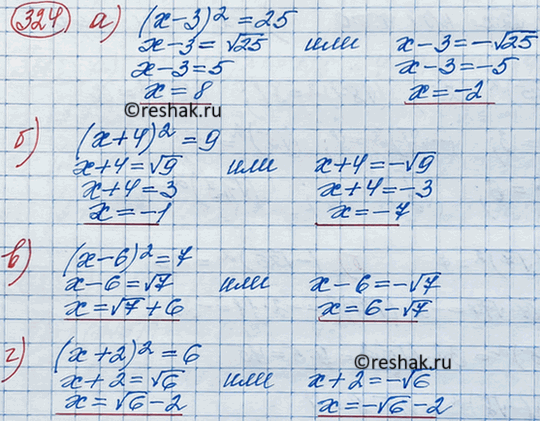 324 а) (x-3)² = 25
x-3 = √25 или x-3 = -√25
x-3 = 5 x-3 = -5
x = 8 x = -2
©reshak.ru
б) (x+4)² = 9
x+4 = √9 или x+4 = -√9
x+4 = 3 x+4 = -3
x = -1 x = -7
в) (x-6)² = 7
x-6 = √7 или x-6 = -√7
x = √7 + 6 x = 6 - √7
г) (x+2)² = 6
©reshak.ru
x+2 = √6 или x+2 = -√6
x = √6 - 2 x = -√6 - 2